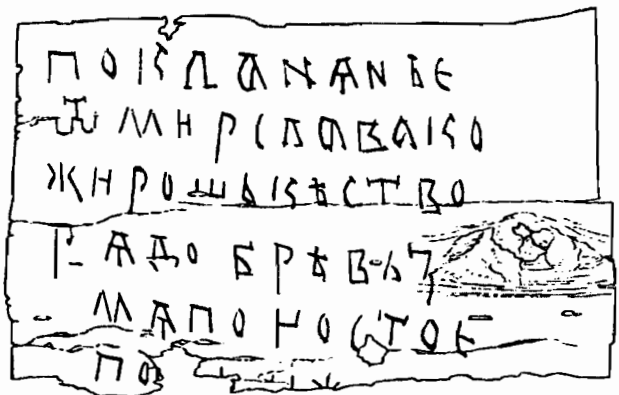 ПОКЛАNѦNЬЕ
ѾМИРСЛАВАКО
ЖИРОШЬКѢСТВО
Г-ѦДОБРѢВЪЗ
МѦПОИОСТОЕ
ПО